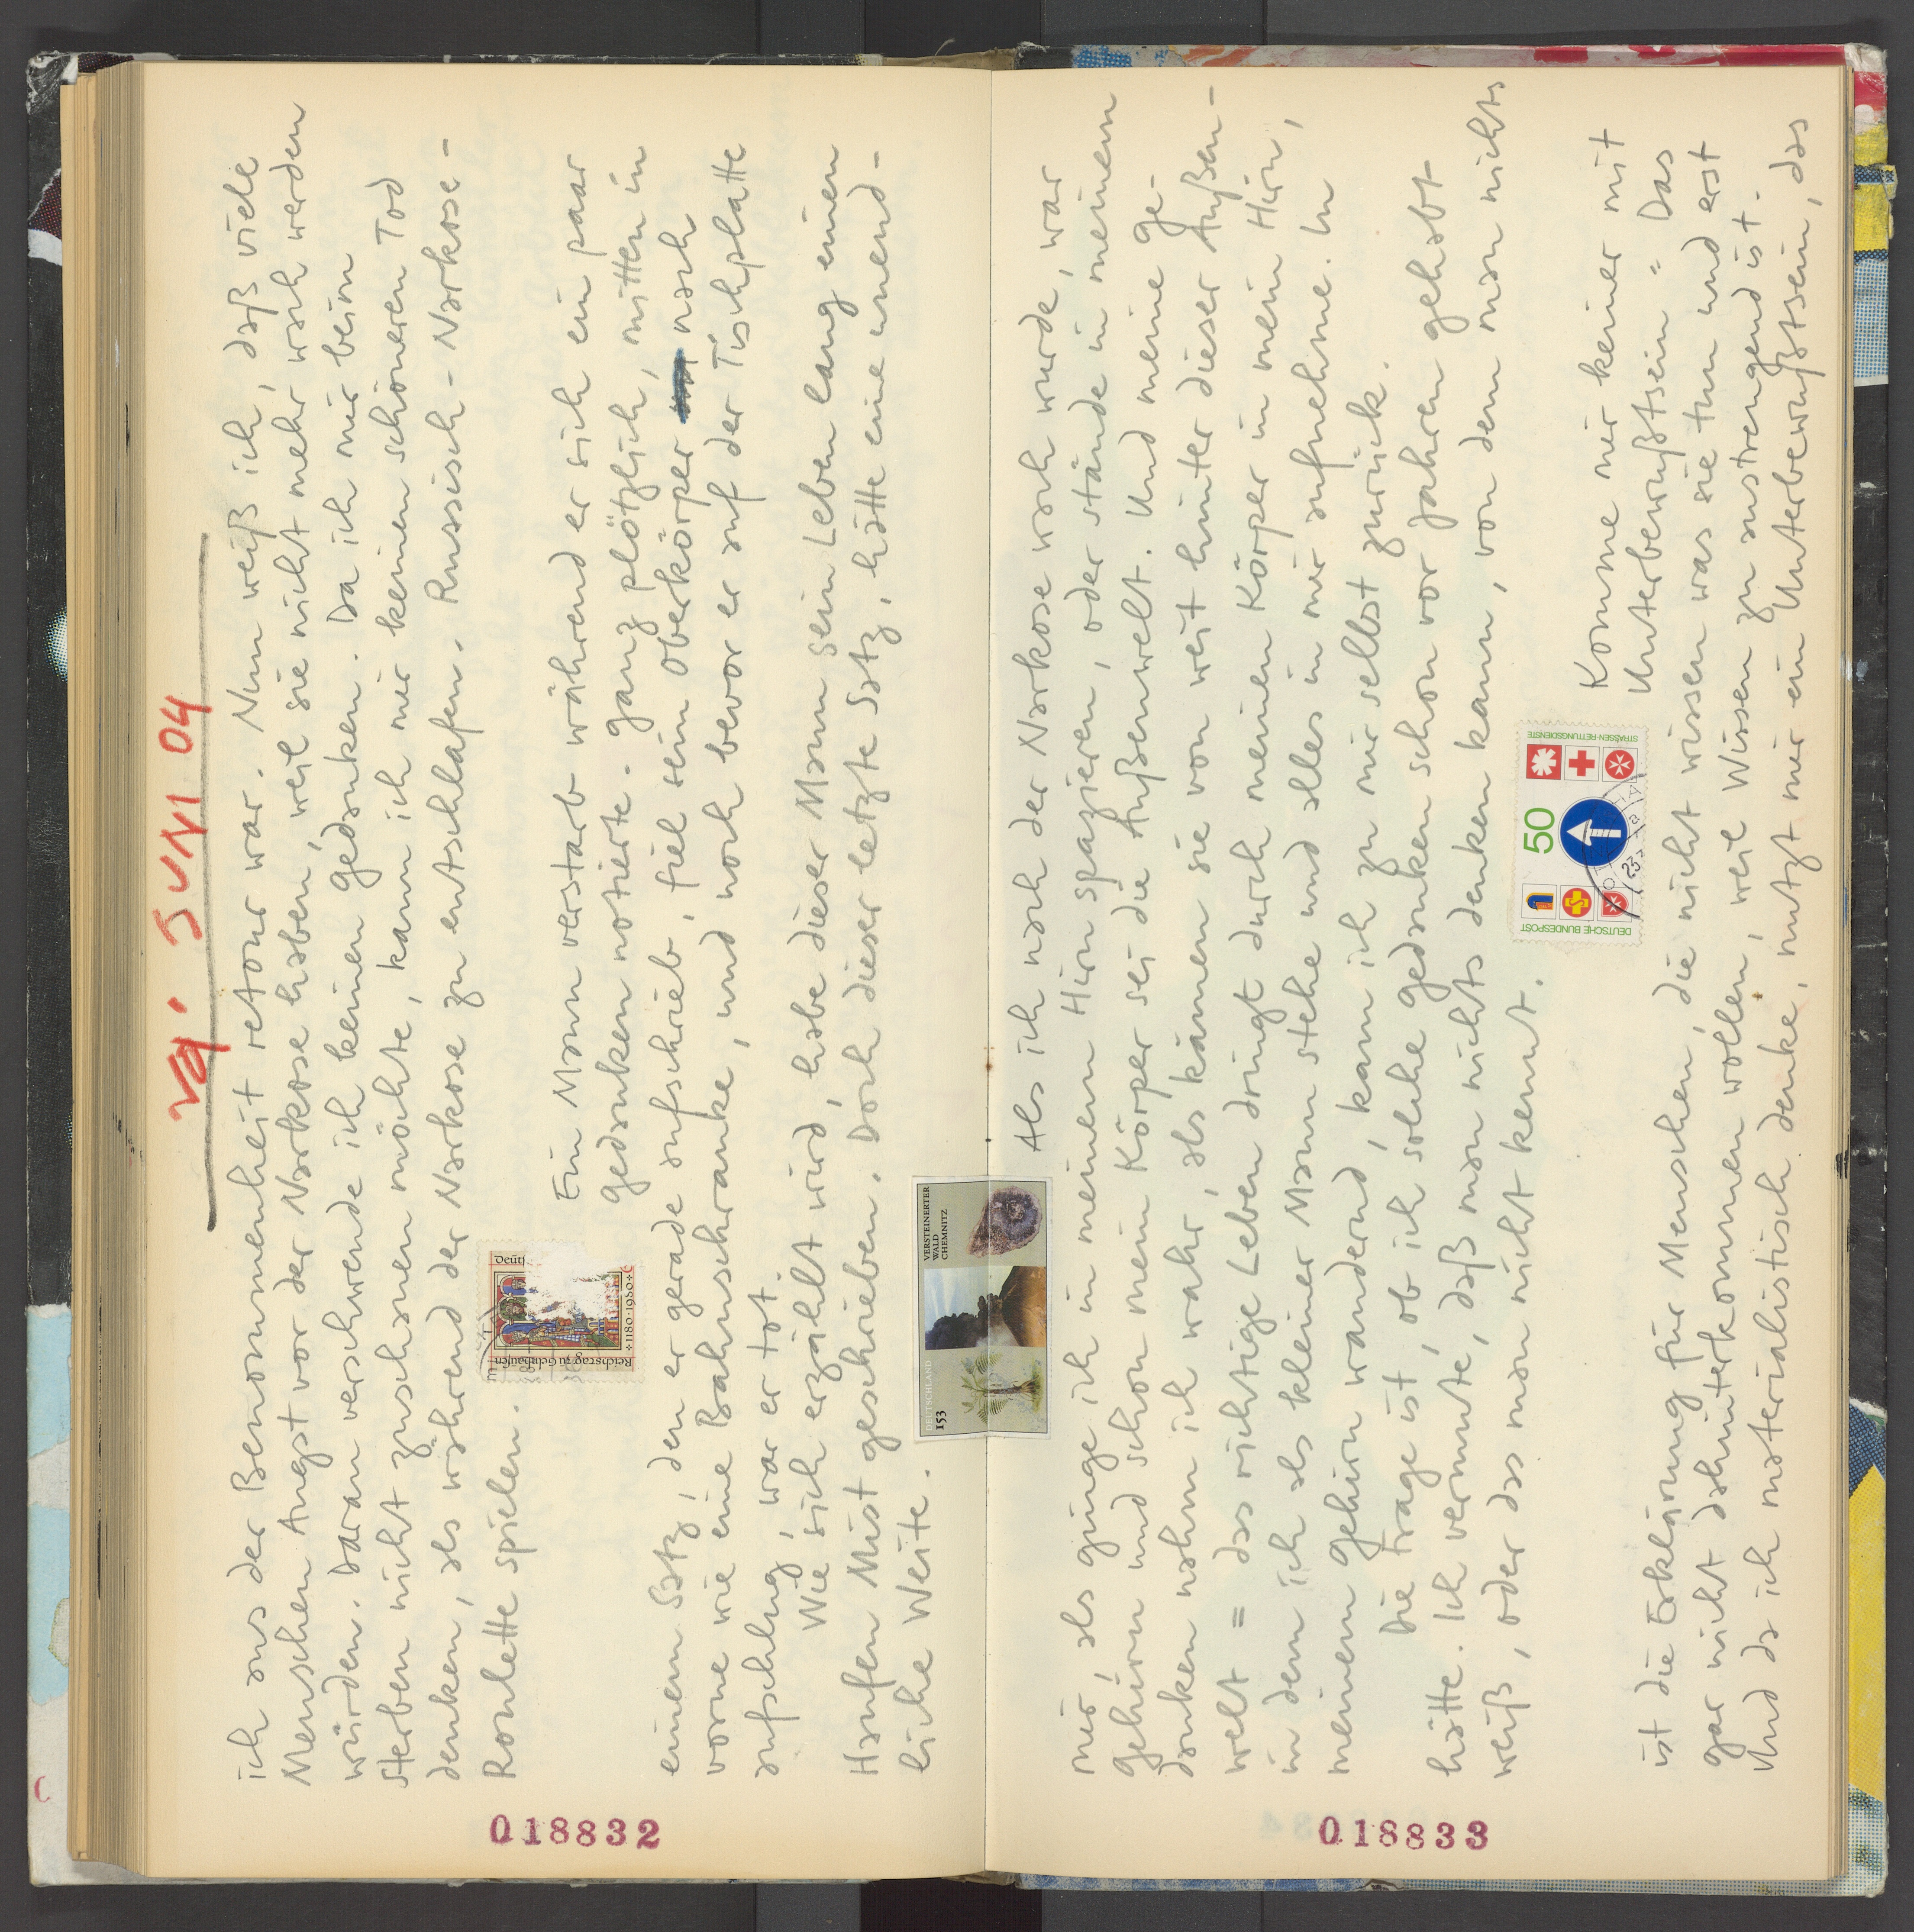 Va. JUNI 04
ich aus der Benommenheit retour war. Nun weiß ich, daß viele
Menschen Angst vor der Narkose haben, weil sie nicht mehr wach werden
würden. Daran verschwende ich keinen Gedanken. Da ich mir beim
Sterben nicht zuschauen möchte, kann ich mir keinen schöneren Tod
denken, als während der Narkose zu entschlafen. Russisch-Narkose-
Roulette spielen.
Ein Mann verstarb während er sich ein paar
Gedanken notierte. Ganz plötzlich, mitten in
einem Satz, den er gerade aufschrieb, fiel sein Oberkörper nach
vorne wie eine Bahnschranke, und noch bevor er auf der Tischplatte
aufschlug, war er tot.
Wie sich erzählt wird, habe dieser Mann sein Leben lang einen
Haufen Mist geschrieben. Doch dieser letzte Satz, hätte eine unend-
liche Weite.
Reichstag zu Gelnhausen
1180·1980
018832
DEUTSCHLAND
153
VERSTEINERTER
WALD
CHEMNITZ
Als ich nach der Narkose wach wurde, war
mir, als ginge ich in meinem Hirn spazieren, oder stände in meinem
Gehirn und schon mein Körper sei die Außenwelt. Und meine Ge-
danken nahm ich wahr, als kämen sie von weit hinter dieser Außen-
welt = das richtige Leben dringt durch meinen Körper in mein Hirn,
in dem ich als kleiner Mann stehe und alles in mir aufnehme. In
meinem Gehirn wandernd, kann ich zu mir selbst zurück.
Die Frage ist, ob ich solche Gedanken schon vor Jahren gehabt
hätte. Ich vermute, daß man nichts denken kann, von dem man nichts
weiß, oder das man nicht kennt.
DEUTSCHE BUNDESPOST
50
STRASSEN-RETTUNGSDIENSTE
Komme mir keiner mit
Unterbewußtsein = Das
ist die Erklärung für Menschen, die nicht wissen was sie tun und erst
gar nicht dahinterkommen wollen, weil Wissen zu anstrengend ist.
Und da ich materialistisch denke, nutzt mir ein Unterbewußtsein, das
018833